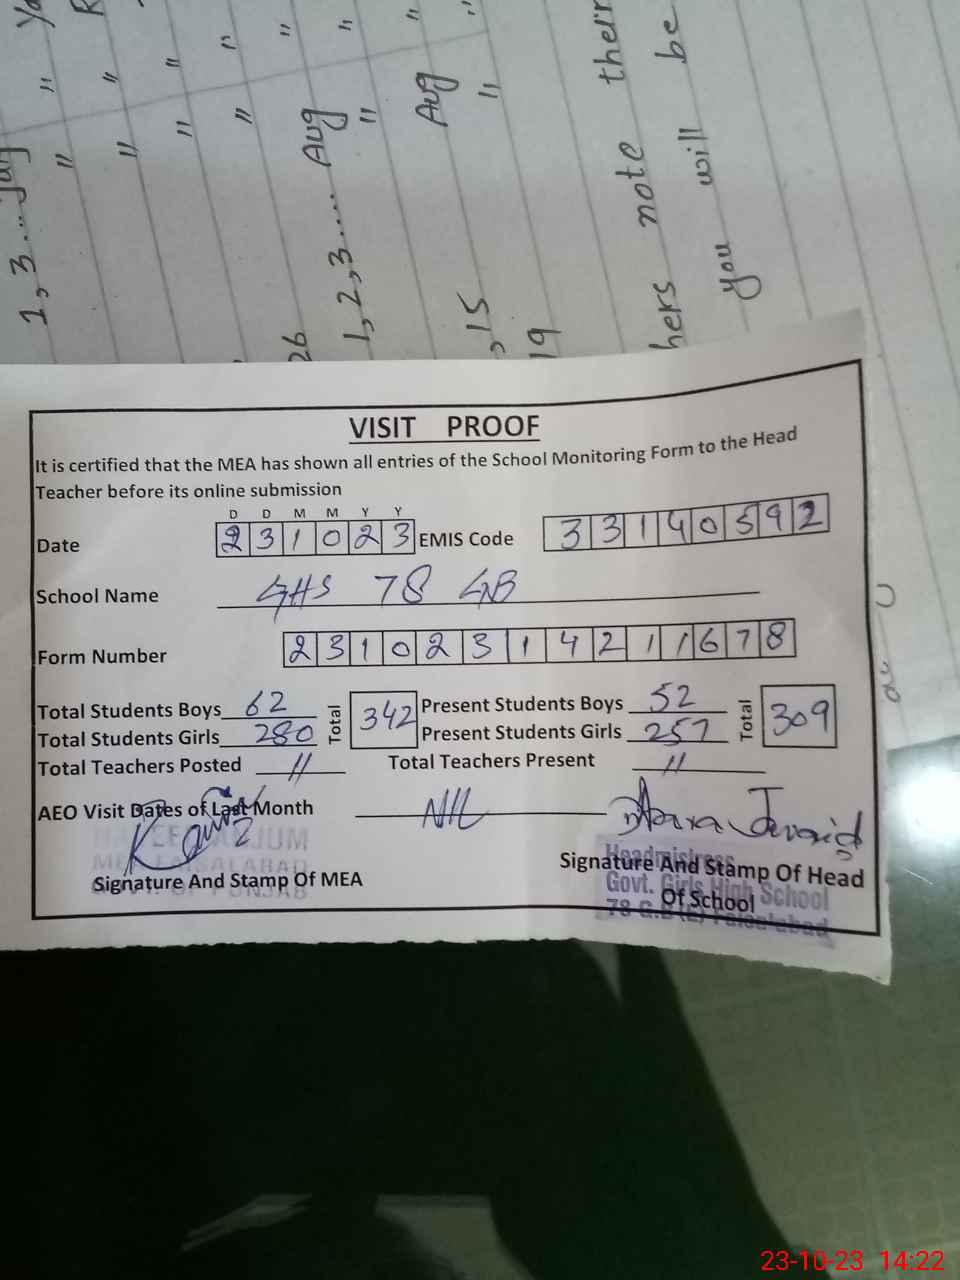 1, 3 ... " Ya
" " R
" " "
" " "
26 " "
1, 2, 3 ..... Aug "
" "
, 15 Aug "
19 "
hers note their
you will be
VISIT PROOF
It is certified that the MEA has shown all entries of the School Monitoring Form to the Head
Teacher before its online submission
D D M M Y Y
Date 2 3 1 0 2 3 EMIS Code 3 3 1 4 0 5 9 2
School Name GHS 78 GB
Form Number 2 3 1 0 2 3 1 4 2 1 1 6 7 8
Total Students Boys 62 Total 342 Present Students Boys 52 Total 309
Total Students Girls 280 Present Students Girls 257
Total Teachers Posted 11 Total Teachers Present 11
AEO Visit Dates of Last Month NIL
Signature And Stamp Of MEA
Signature And Stamp Of Head
Of School
Headmistress
Govt. Girls High School
78 G.B (E) Faisalabad
23-10-23 14:22